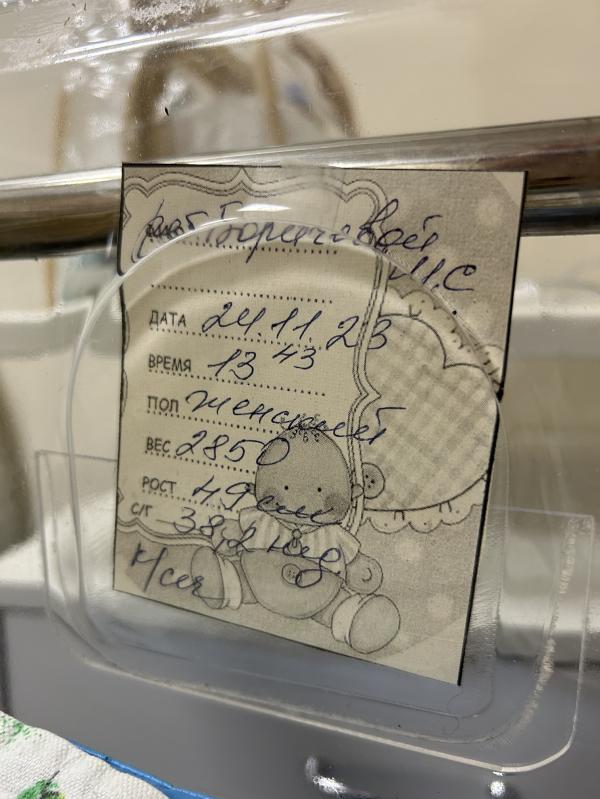 реб. Боричевой
М.С
ДАТА 24.11.23
ВРЕМЯ 13 43
ПОЛ женский
ВЕС 2850
РОСТ 49 см
С/Г 38,2 нед
к/сеч